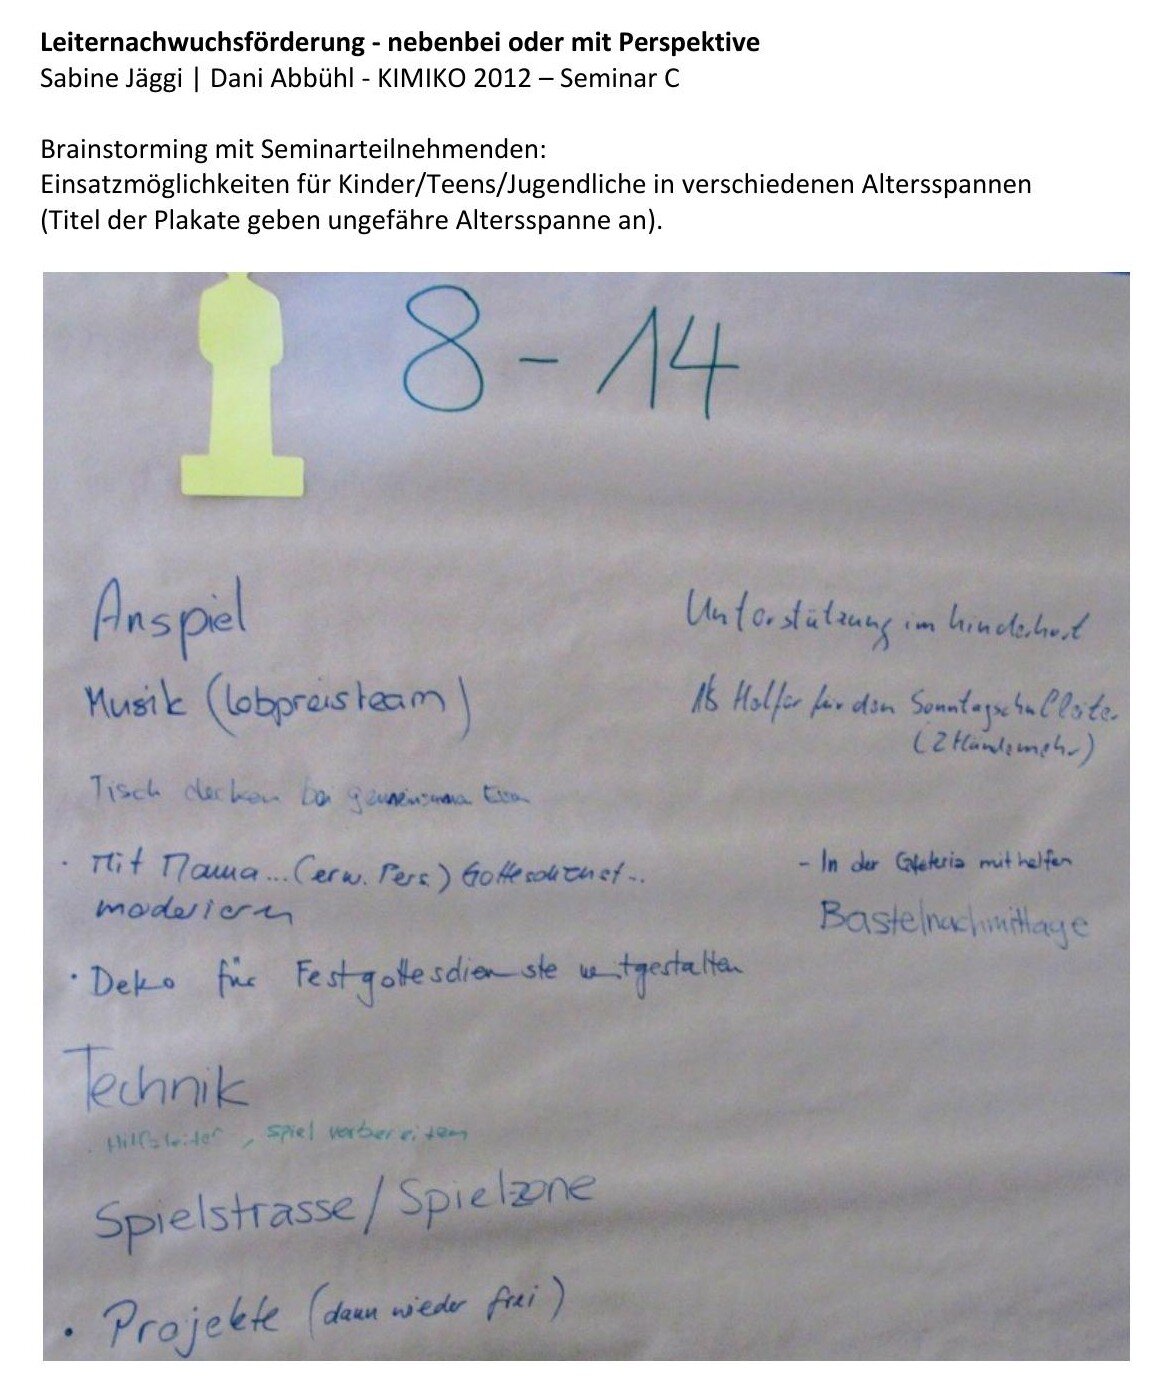 Leiternachwuchsförderung - nebenbei oder mit Perspektive
Sabine Jäggi | Dani Abbühl - KIMIKO 2012 – Seminar C
Brainstorming mit Seminarteilnehmenden:
Einsatzmöglichkeiten für Kinder/Teens/Jugendliche in verschiedenen Altersspannen
(Titel der Plakate geben ungefähre Altersspanne an).
8 - 14
Anspiel
Musik (Lobpreisteam)
Tisch decken bei
· Mit Mama... (erw. Pers.) Gottesdienst...
moderieren
· Deko für Festgottesdienste mitgestalten
Technik
. Hilfsleiter, spiel vorbereiten
Spielstrasse / Spielzone
· Projekte (dann wieder frei)
Unterstützung im Kinderhort
Als Helfer für den Sonntagschulleiter
(2 Hände mehr)
- In der Cafeteria mithelfen
Bastelnachmittage